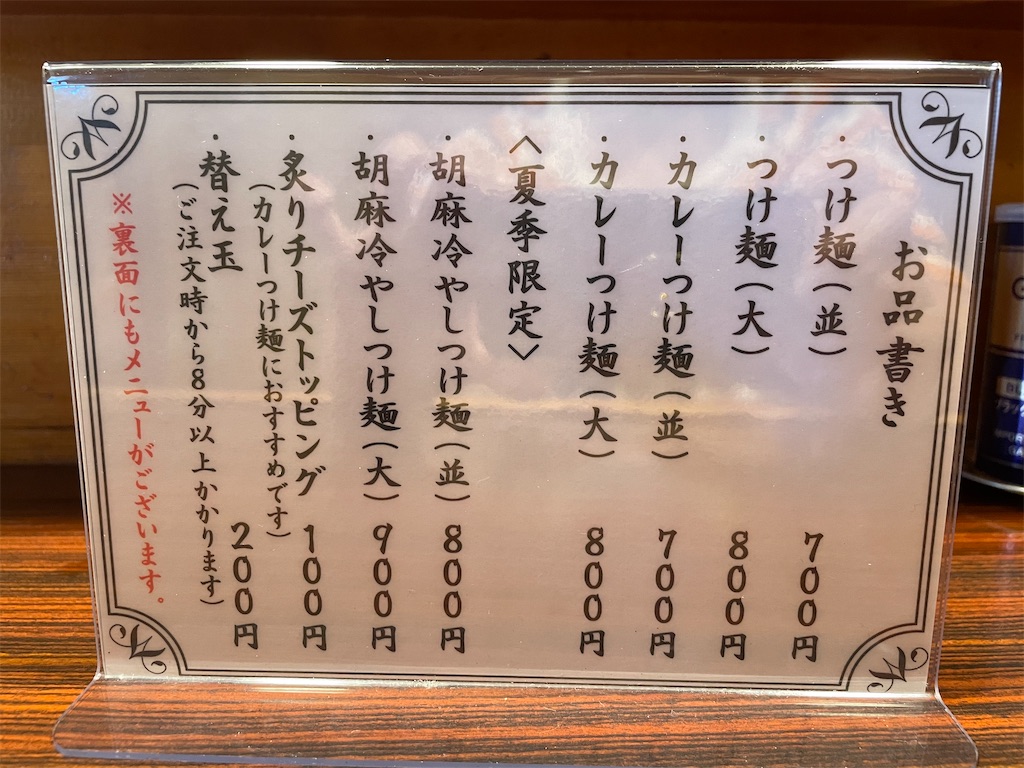 お品書き
・つけ麺(並) 700円
・つけ麺(大) 800円
・カレーつけ麺(並) 700円
・カレーつけ麺(大) 800円
〈夏季限定〉
・胡麻冷やしつけ麺(並) 800円
・胡麻冷やしつけ麺(大) 900円
・炙りチーズトッピング 100円
(カレーつけ麺におすすめです)
・替え玉 200円
(ご注文時から8分以上かかります)
※裏面にもメニューがございます。